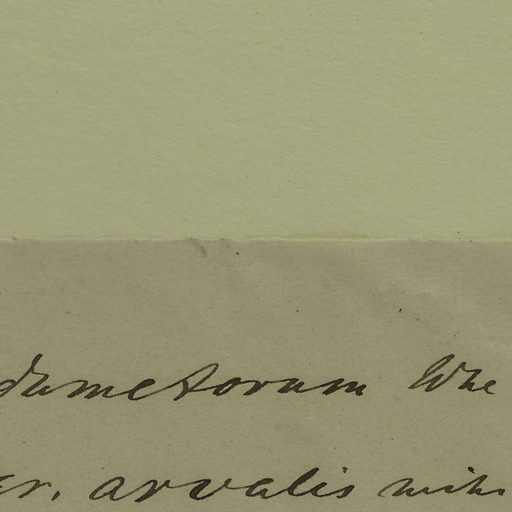 dumetorum Whe
ar. arvalis mihi